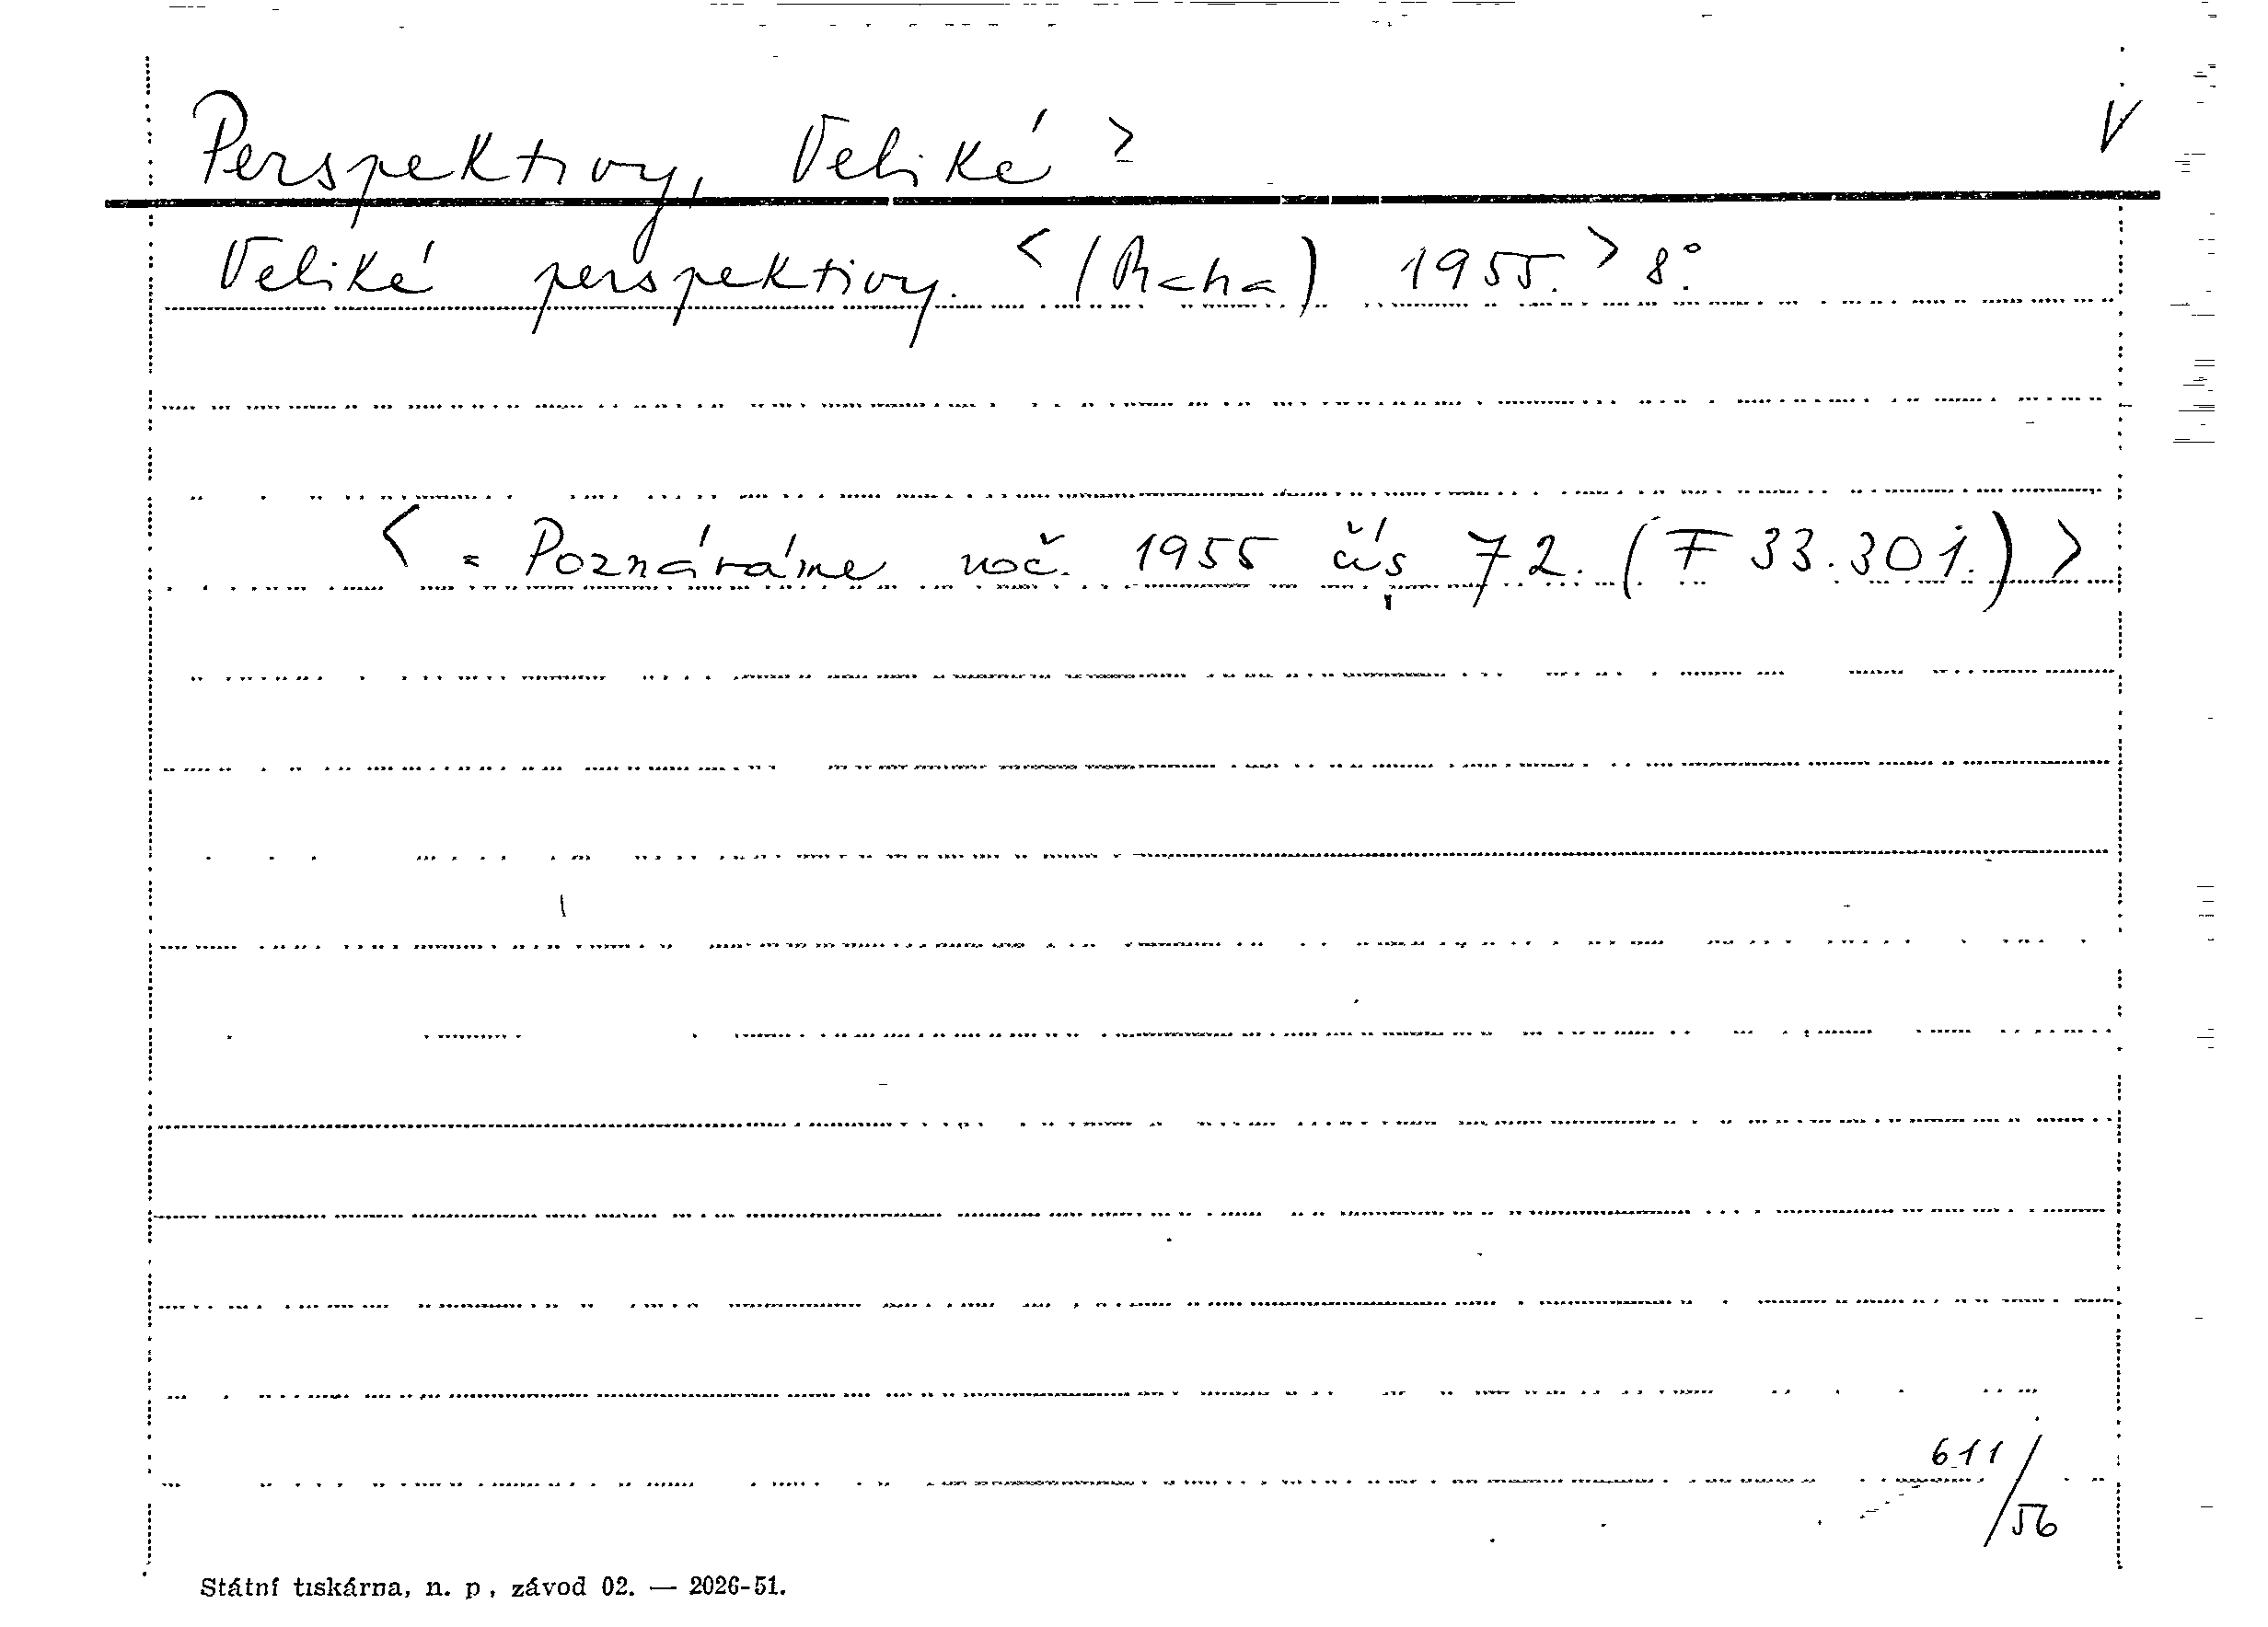 Perspektivy, Veliké > V
Veliké perspektivy. < (Praha) 1955. > 8°.
< = Poznáváme roč. 1955 čís 72. (F 33.301.) >
611/56
Státní tiskárna, n. p., závod 02. — 2026-51.